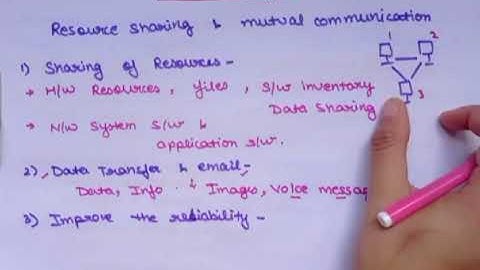 Resource sharing & mutual communication
1) Sharing of Resources -
→ H/w Resources, files, s/w inventory
Data Sharing
→ N/w System s/w &
application s/w.
2) Data Transfer & email,-
Data, Info. & Images, Voice messag
3) Improve the reliability -
1
2
3